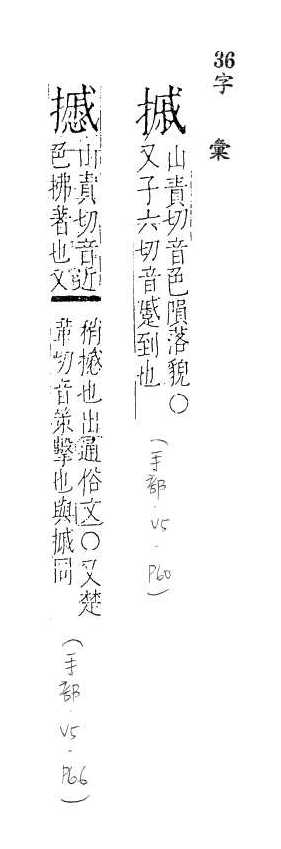 36
字彙
摵
山責切音色隕落貌○
又子六切音蹙到也
(手部.V5.P60)
摵
山責切音近
色拂著也又
梢摵也出通俗文○又楚
革切音策擊也與摵同
(手部.V5.P66)